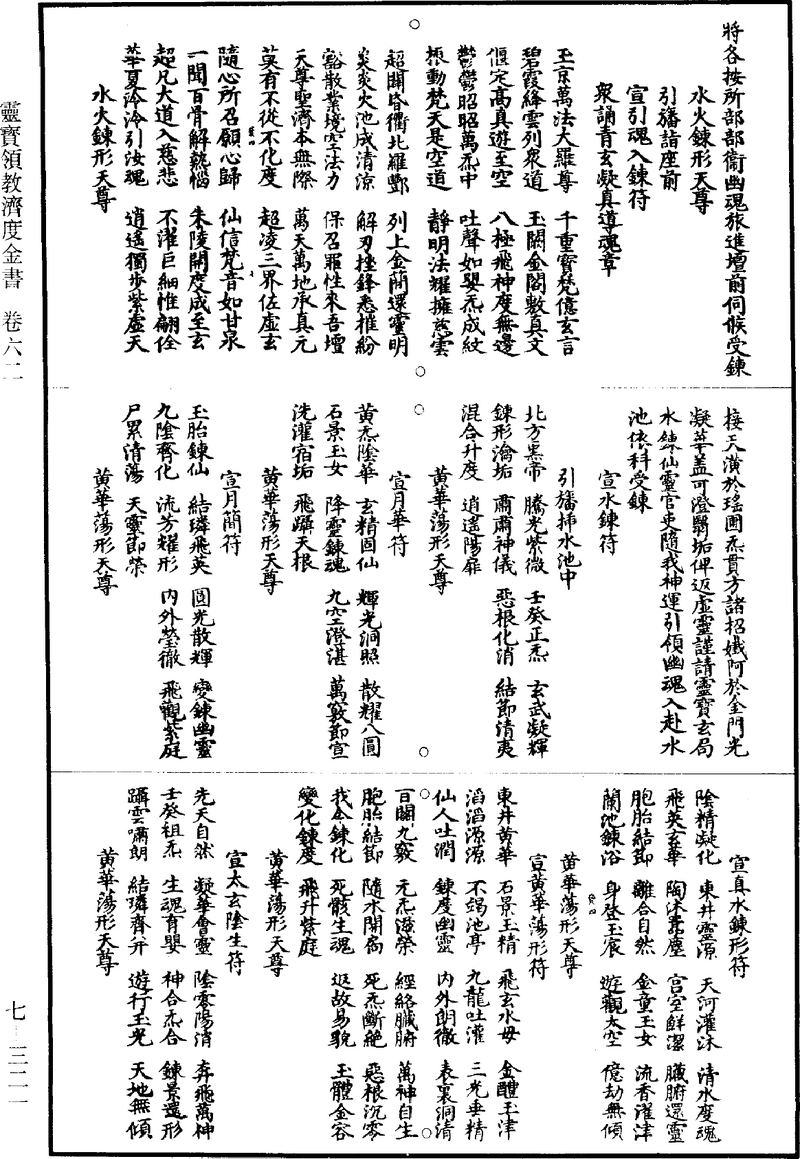 靈寶領教濟度金書 卷六二
七—三二一
將各按所部部衛幽魂旅進壇前伺候受鍊
水火鍊形天尊
引旛詣座前
宣引魂入鍊符
眾誦青玄凝真導魂章
玉京萬法大羅尊 千重寶梵億玄言
碧霞絳雲列眾道 玉闕金閣敷真文
偃定高真遊至空 八極飛神度無邊
鬱鬱昭昭萬炁中 吐聲如嬰炁成紋
振動梵天是空道 靜明法耀擁慈雲
超開昏衢北羅酆 列上金蕳還靈明
炎炎火池成清涼 解刃挫鋒悉摧紛
豁散業境空法力 保召罪性來吾壇
天尊聖濟本無際 萬天萬地承真元
莫有不從不化度 超凌三界佐虛玄
隨心所召願心歸 仙信梵音如甘泉
一聞百骨解熱惱 朱陵開度成至玄
超凡大道入慈悲 不濯巨細惟翩佺
華夏泠泠引汝魂 逍遙獨步紫虛天
水火鍊形天尊
接天潢於瑤圃炁貫方諸招孅阿於金門光
凝華蓋可澄翳垢俾返虛靈謹請靈寶玄局
水鍊仙靈官吏隨我神運引領幽魂入赴水
池依科受鍊
宣水鍊符
北方黑帝 騰光紫微 壬癸正炁 玄武凝輝
鍊形瀹垢 肅肅神儀 惡根化消 結節清夷
混合升度 逍遙陽扉
引旛揷水池中
黃華蕩形天尊
宣月華符
黃炁陰華 玄精固仙 輝光洞照 散耀八圓
石景玉女 降靈鍊魂 九空澄湛 萬竅節宣
洗灌宿垢 飛躡天根
黃華蕩形天尊
宣月蕳符
玉胎鍊仙 結璘飛英 圓光散輝 變鍊幽靈
九陰齊化 流芳耀形 內外瑩徹 飛觀紫庭
尸累清蕩 天靈節榮
黃華蕩形天尊
宣真水鍊形符
陰精凝化 東井靈源 天河灌沐 清水度魂
飛英玄華 陶沐囂塵 宮室鮮潔 臟腑還靈
胞胎結節 離合自然 金童玉女 流香濯津
蘭池鍊浴 身登玉宸 遊觀太空 億劫無傾
黃華蕩形天尊
宣黃華蕩形符
東井黃華 石景玉精 飛玄水母 金醴玉津
滔滔源源 不竭池亭 九龍吐灌 三光垂精
仙人吐潤 鍊度幽靈 內外朗徹 表裏洞清
百關九竅 元炁滋榮 經絡臟腑 萬神自生
胞胎結節 隨水開扃 死炁斷絕 惡根沉零
我今鍊化 死骸生魂 返故易貌 玉體金容
變化鍊度 飛升紫庭
黃華蕩形天尊
宣太玄陰生符
先天自然 凝華會靈 陰零陽消 奔飛萬神
壬癸祖炁 生魂育嬰 神合炁合 鍊景還形
躡雲嘯朗 結璘齊并 遊行玉光 天地無傾
黃華蕩形天尊